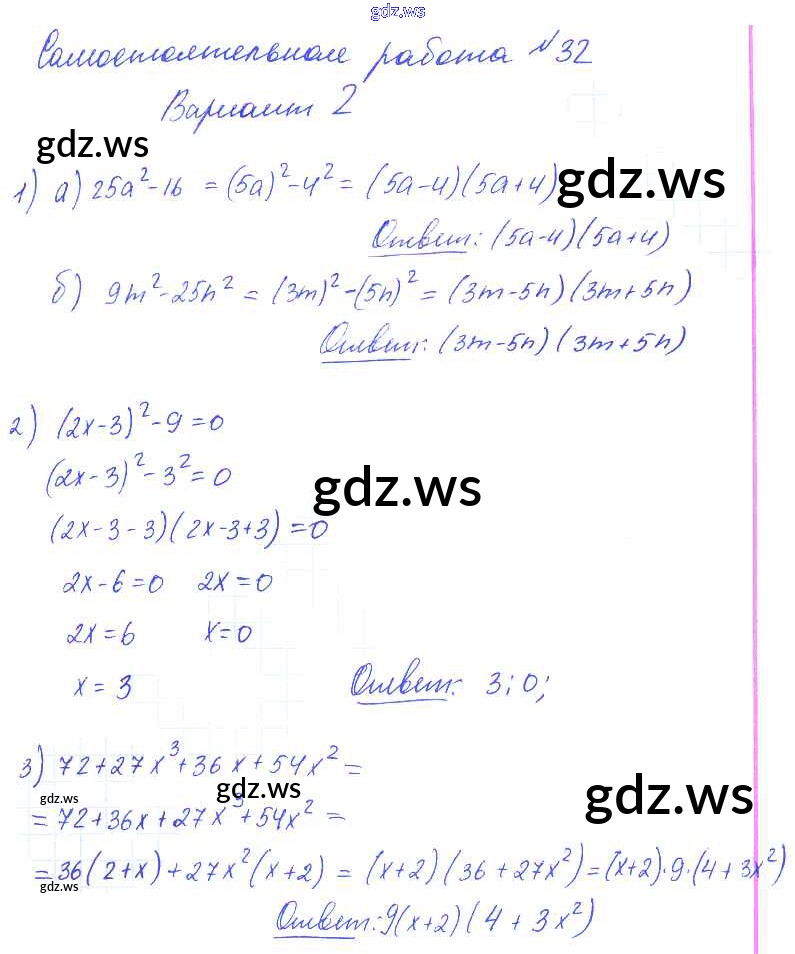 gdz.ws
Самостоятельная работа №32
Вариант 2
gdz.ws
1) а) 25a² - 16 = (5a)² - 4² = (5a-4)(5a+4)
gdz.ws
Ответ: (5a-4)(5a+4)
б) 9m² - 25n² = (3m)² - (5n)² = (3m-5n)(3m+5n)
Ответ: (3m-5n)(3m+5n)
2) (2x-3)² - 9 = 0
(2x-3)² - 3² = 0
gdz.ws
(2x-3-3)(2x-3+3) = 0
2x-6=0 2x=0
2x=6 x=0
x=3 Ответ: 3; 0;
3) 72+27x³+36x+54x² =
gdz.ws gdz.ws gdz.ws
= 72+36x+27x³+54x² =
= 36(2+x)+27x²(x+2) = (x+2)(36+27x²) = (x+2)·9·(4+3x²)
gdz.ws
Ответ: 9(x+2)(4+3x²)